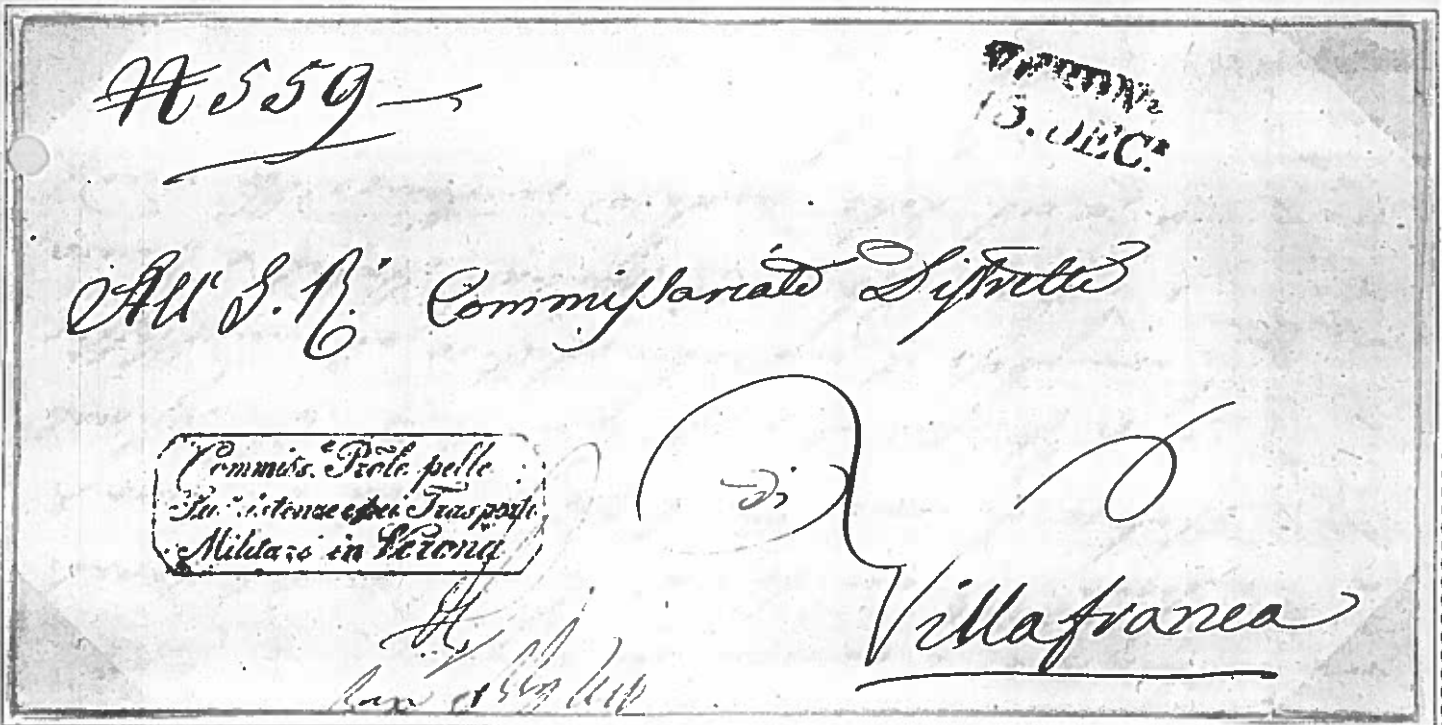 N 559
13. DEC.
All' I. R. Commissariato Distrettle
Commiss. Prole. pelle
Sussistenze e pei Trasporti
Militari in Verona
di
Villafranca